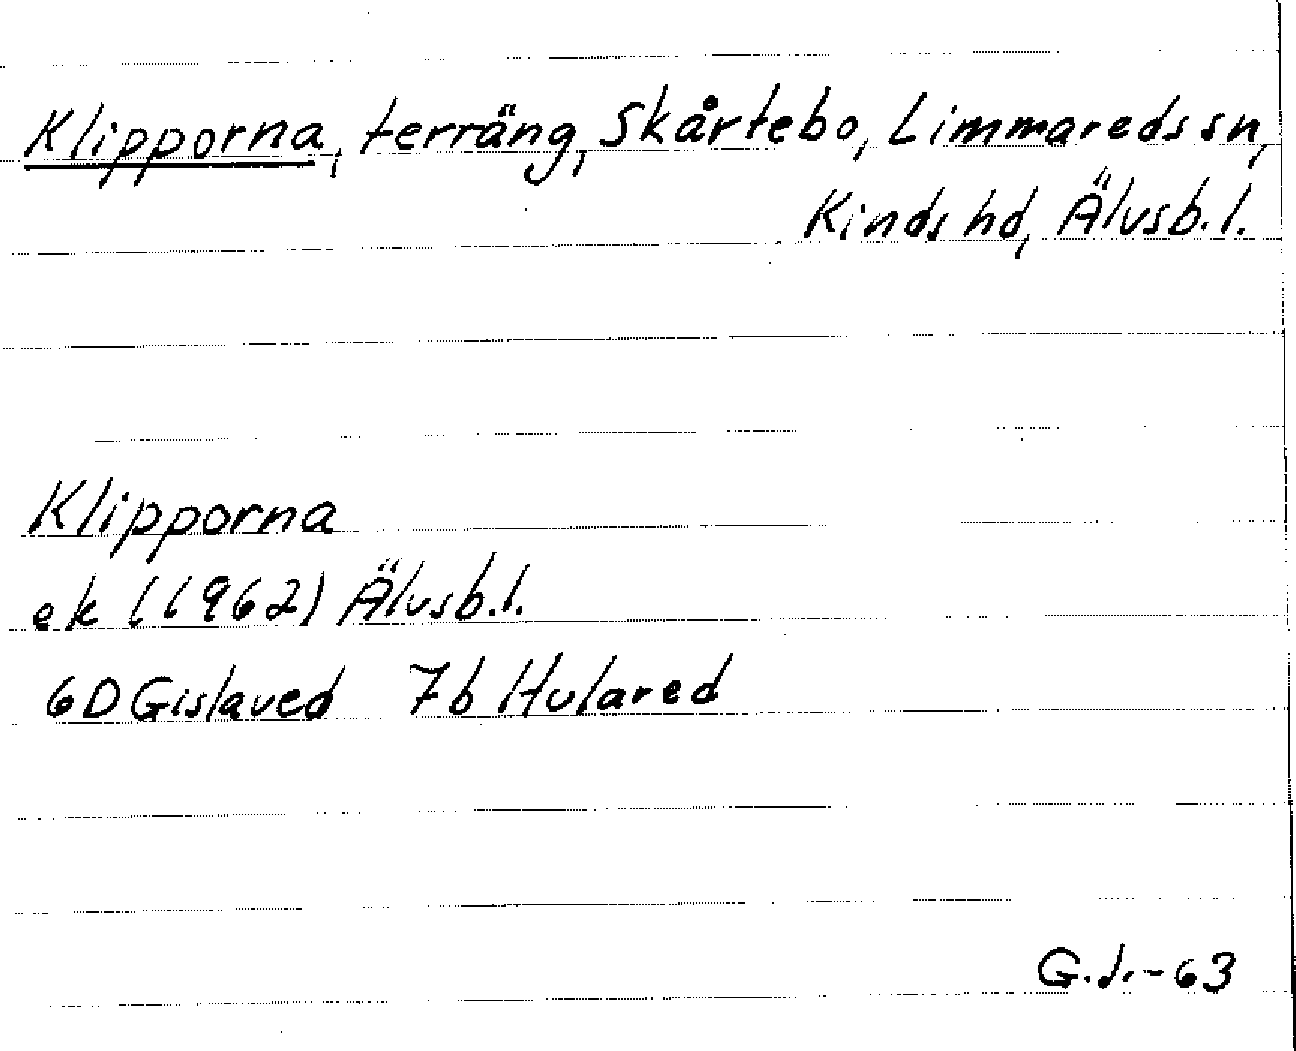 Klipporna, terräng, Skårtebo, Limmareds sn,
Kinds hd, Älvsb. l.
Klipporna
ek (1962) Älvsb. l.
6D Gislaved 7b Hulared
G.J. -63